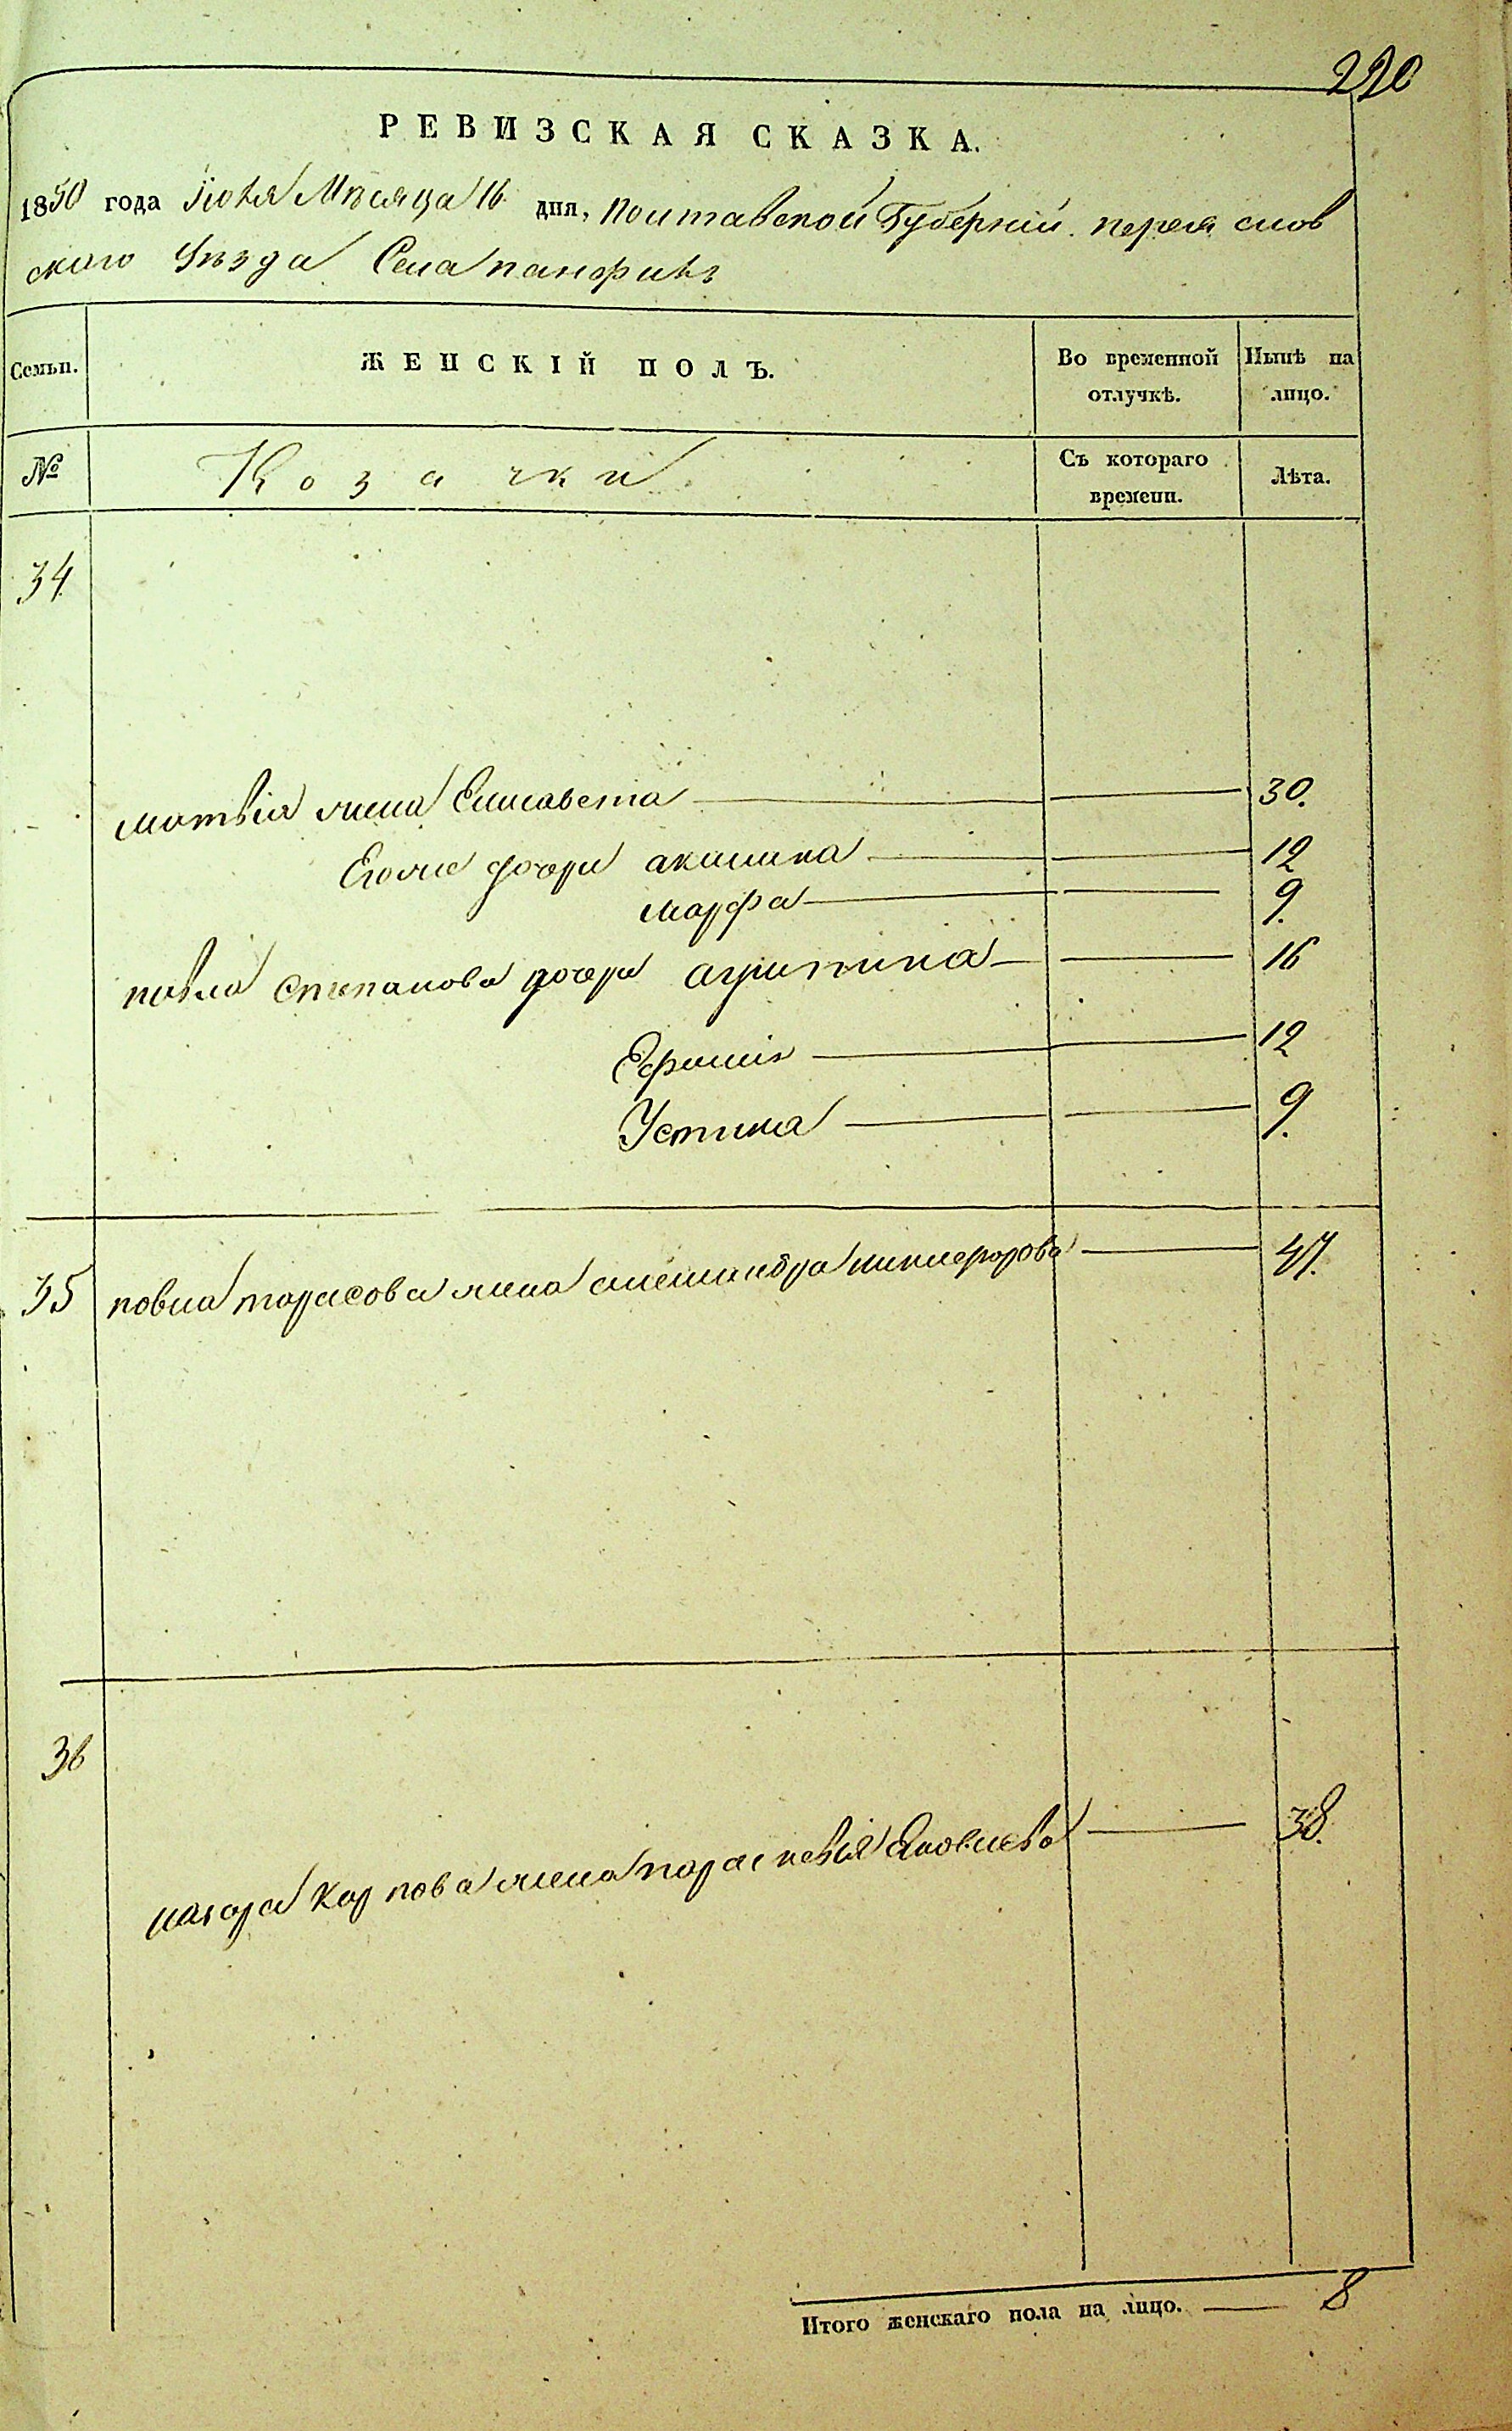 220
РЕВИЗСКАЯ СКАЗКА.
1850 года Іюня Мѣсяца 16 дня, Полтавской Губерніи переяслов
ского Уѣзда Села панфилъ
Семьи. ЖЕНСКІЙ ПОЛЪ. Во временной отлучкѣ. Нынѣ на лицо.
№ Козачки Съ котораго времени. Лѣта.
34
матвія жена Елисавета 30.
Егоже дочери акилина 12
марфа 9.
павла степанова дочери агрипина 16
Ефимія 12
Устина 9.
35 павла тарасова жена александра никифорова 47.
36
назара карпова жена параскевія Яковлева 38.
Итого женскаго пола на лицо. 8